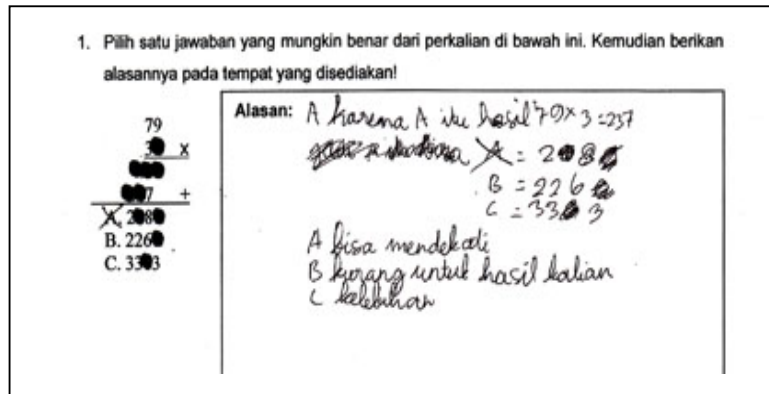 1. Pilih satu jawaban yang mungkin benar dari perkalian di bawah ini. Kemudian berikan
alasannya pada tempat yang disediakan!
79
3● x
●●●
●●7 +
A. 2●8●
B. 226●
C. 33●3
Alasan: A karena A itu hasil 79 x 3 = 237
A = 2●8●
B = 226●
C = 33●3
A bisa mendekati
B kurang untuk hasil kalian
C kelebihan